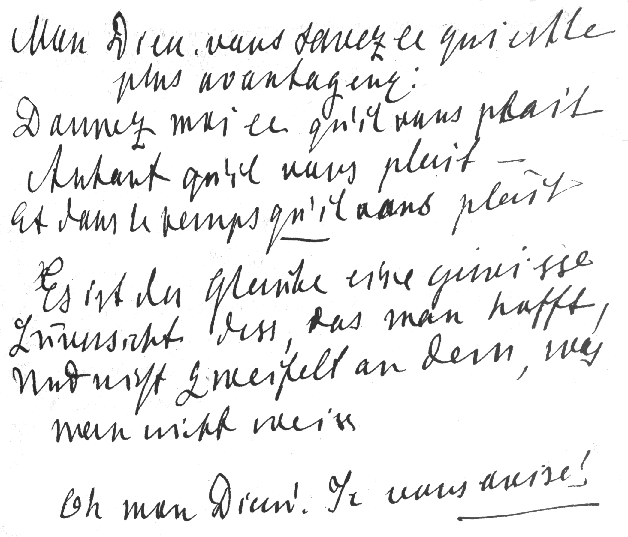 Mon Dieu, vous savez ce qui est le
plus avantageux:
Donnez moi ce qu'il vous plait
Autant qu'il vous plait —
Et dans le temps qu'il vous plaît
Es ist der Glaube eine gewisse
Zuversicht dess, das man hofft,
Und nicht zweifelt an dem, was
man nicht weiss
Oh mon Dieu! Je vous